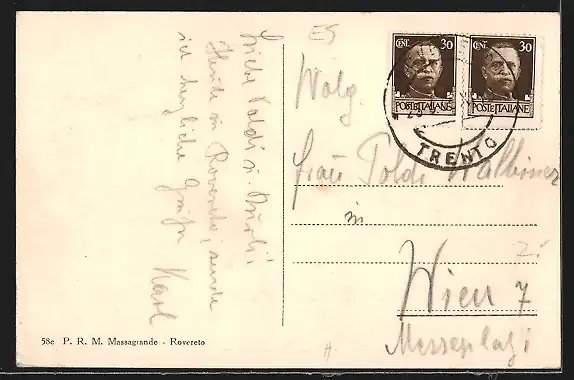 Liebe Poldi u. Burli!
Heute in Rovereto, sende
ich herzliche Grüße
Karl
58e P. R. M. Massagrande - Rovereto
E5
CENT. 30
POSTE ITALIANE
CENT. 30
POSTE ITALIANE
TRENTO
Wolg.
Frau Poldi Wallner
in
Wien 7
Messeplatz 1